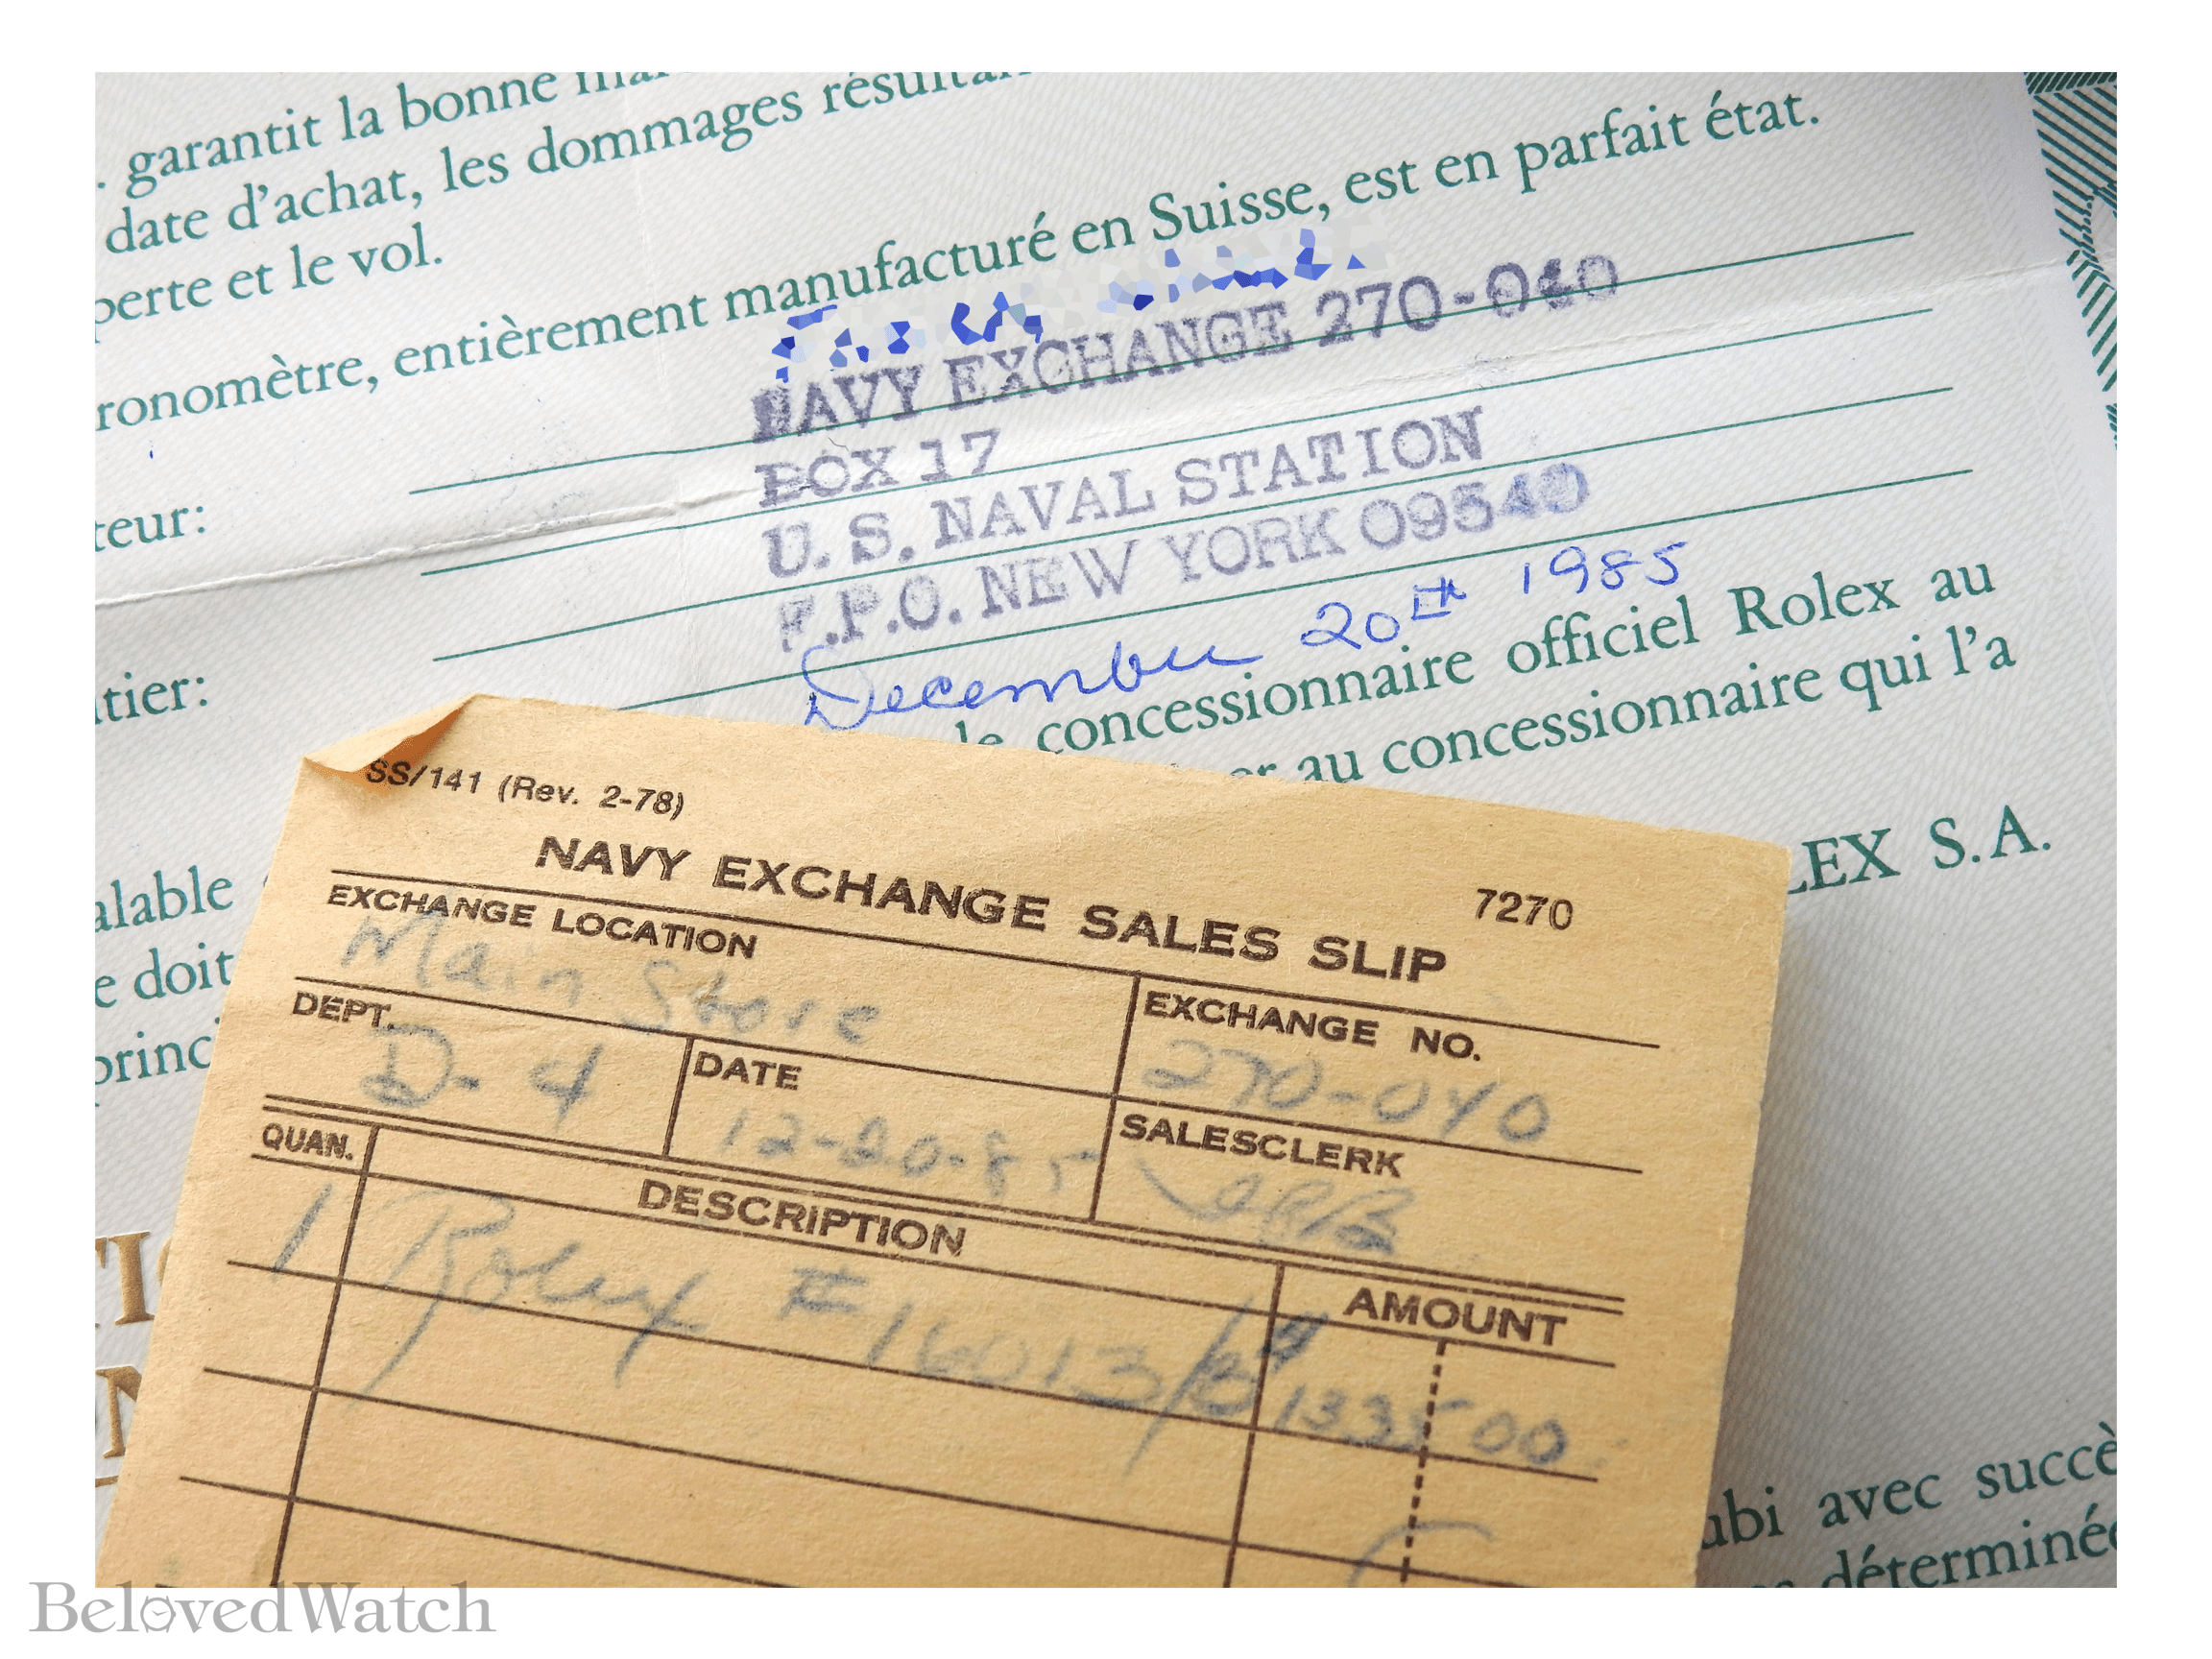 garantit la bonne
date d'achat, les dommages
perte et le vol.
ronomètre, entièrement manufacturé en Suisse, est en parfait état.
NAVY EXCHANGE 270-040
teur:
BOX 17
U. S. NAVAL STATION
F.P.O. NEW YORK 09540
tier:
December 20th 1985
le concessionnaire officiel Rolex au
er au concessionnaire qui l'a
LEX S.A.
alable
e doit
princ
SS/141 (Rev. 2-78)
NAVY EXCHANGE SALES SLIP
7270
EXCHANGE LOCATION
Main Store
EXCHANGE NO.
270-040
DEPT.
D-4
DATE
12-20-85
SALESCLERK
QUAN.
DESCRIPTION
AMOUNT
1 Rolex #16013/B 1335 00
ubi avec succè
déterminée
BelovedWatch